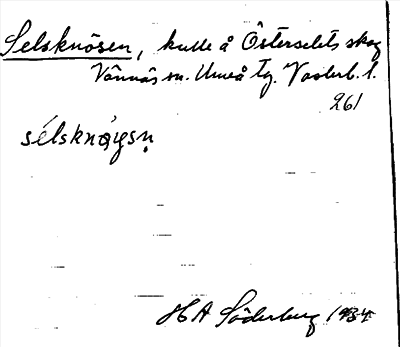 Selsknösen, kulle å Österselets skog
Vännäs sn. Umeå tg. Västerb. l.
261
sélsknǿysn̥
H A Söderberg 1934